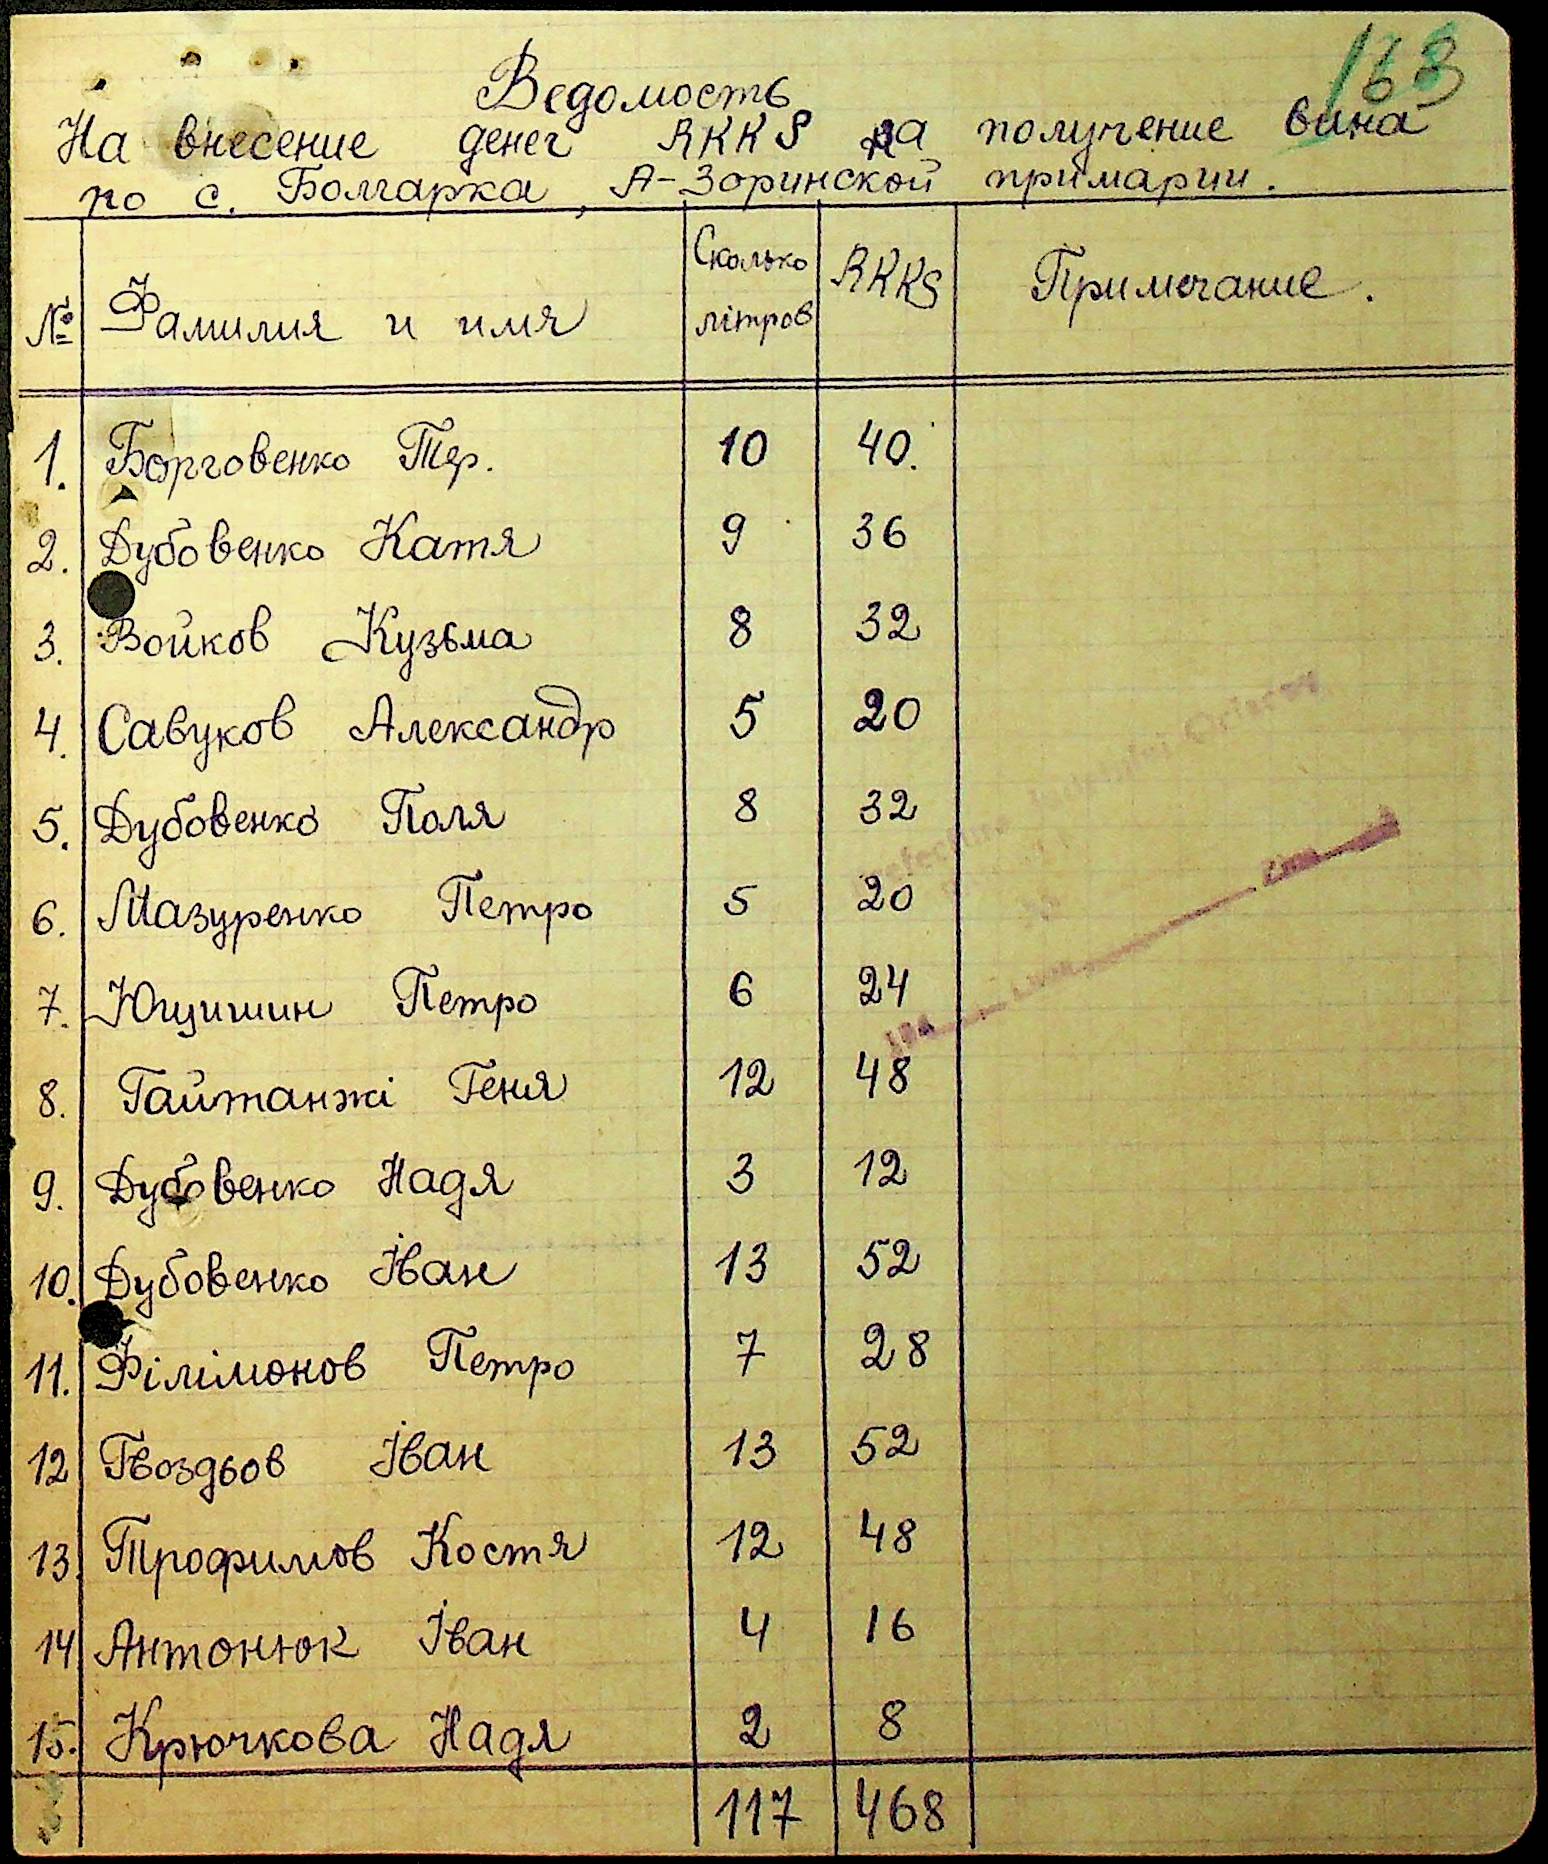 163
Ведомость
На внесение денег RKKS на получение вина
по с. Болгарка, А-Зоринской примарии.
№ Фамилия и имя Сколько літров RKKS Примечание.
1. Борговенко Тер. 10 40.
2. Дубовенко Катя 9 36
3. Войков Кузьма 8 32
4. Савуков Александр 5 20
5. Дубовенко Поля 8 32
6. Мазуренко Петро 5 20
7. Ющишин Петро 6 24
8. Гайтанжі Геня 12 48
9. Дубовенко Надя 3 12
10. Дубовенко Іван 13 52
11. Філімонов Петро 7 28
12 Гвоздьов Іван 13 52
13. Трофимов Костя 12 48
14 Антонюк Іван 4 16
15. Крючкова Надя 2 8
117 468